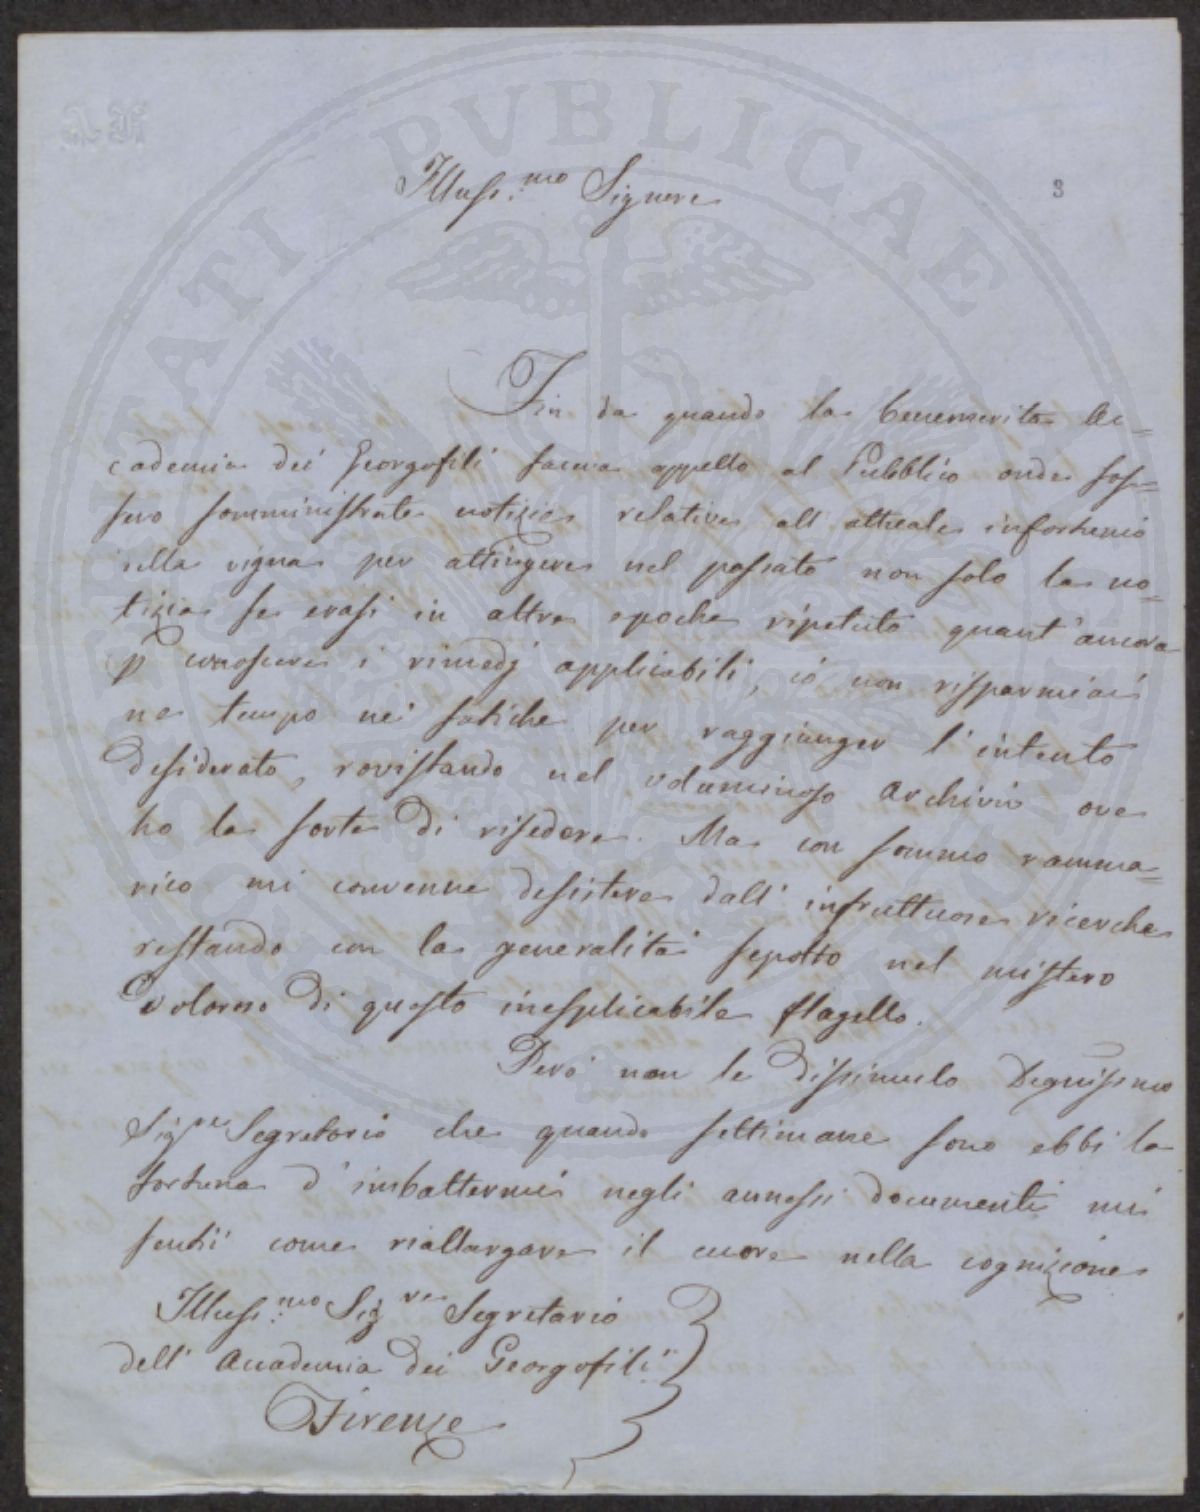 3
Illuss.mo Signore
Fin da quando la benemerita Ac=
cademia dei Georgofili faceva appello al Pubblico onde fos=
sero somministrate notizie relative all' attuale infortunio
della vigna per attingere nel passato non solo la no=
tizia se erasi in altre epoche ripetuto quant' ancora
p conoscere i rimedj applicabili, io non risparmiai
ne tempo nè fatiche per raggiunger l' intento
desiderato, rovistando nel voluminoso archivio ove
ho la sorte di risedere. Ma con sommo ramma=
rico mi convenne desistere dall' infruttuose ricerche
restando con la generalità sepolto nel mistero
doloroso di questo inesplicabile flagello.
Però non le dissimulo Degnissimo
Sigre Segretario che quando settimane sono ebbi la
fortuna d' imbattermi negli annessi documenti mi
sentii come riallargare il cuore nella cognizione
Illuss.mo Sig re Segretario
dell' Accademia dei Georgofili
Firenze
PVBLICAE